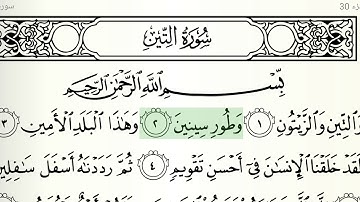 جزء 30
سورة التين
بِسْمِ ٱللَّهِ ٱلرَّحْمَٰنِ ٱلرَّحِيمِ
وَٱلتِّينِ وَٱلزَّيْتُونِ ١ وَطُورِ سِينِينَ ٢ وَهَٰذَا ٱلْبَلَدِ ٱلْأَمِينِ ٣
لَقَدْ خَلَقْنَا ٱلْإِنسَٰنَ فِىٓ أَحْسَنِ تَقْوِيمٍ ٤ ثُمَّ رَدَدْنَٰهُ أَسْفَلَ سَٰفِلِينَ